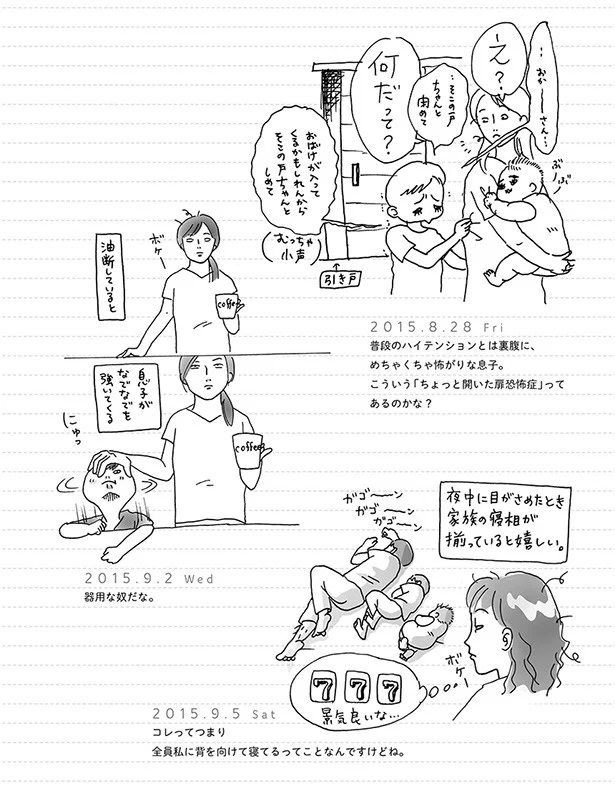 …おかーさん…
え？
…そこの戸
ちゃんと
閉めて
何だって？
おばけが入って
くるかもしれんから
そこの戸ちゃんと
しめて
(むっちゃ
小声)
ぶーぶ
引き戸
2015.8.28 Fri
普段のハイテンションとは裏腹に、
めちゃくちゃ怖がりな息子。
こういう「ちょっと開いた扉恐怖症」って
あるのかな？
油断していると
ボケー
coffee
息子が
なでなでを
強いてくる
こゅっ
coffee
2015.9.2 Wed
器用な奴だな。
夜中に目がさめたとき
家族の寝相が
揃っていると嬉しい。
ガゴーーン
ガゴーーン
ガゴーーン
ボケー
7 7 7
景気良いな…
2015.9.5 Sat
コレってつまり
全員私に背を向けて寝てるってことなんですけどね。